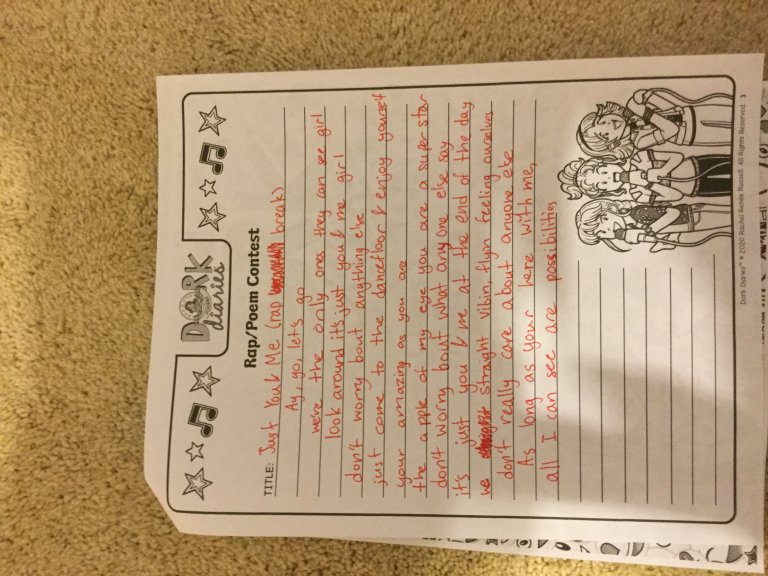 DORK
diaries
Rap/Poem Contest
TITLE: Just You & Me (rap break)
Ay, yo, let's go
we're the only ones they can see girl
look around it's just you & me girl
don't worry bout anything else
just come to the dancefloor & enjoy yourself
your amazing as you are
the apple of my eye you are a super star
don't worry bout what any one else say
it's just you & me at the end of the day
we straight vibin, flyn feeling ourselves
don't really care about anyone else
As long as your here with me,
all I can see are possibilities
Dork Diaries™ © 2020 Rachel Renée Russell. All Rights Reserved. 3